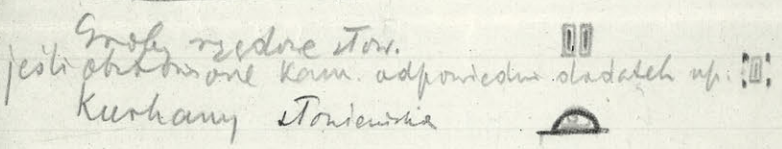 Groby rzędowe słow.
jeśli obstawione kam. odpowiedni dodatek np.
Kurhany słowiańskie